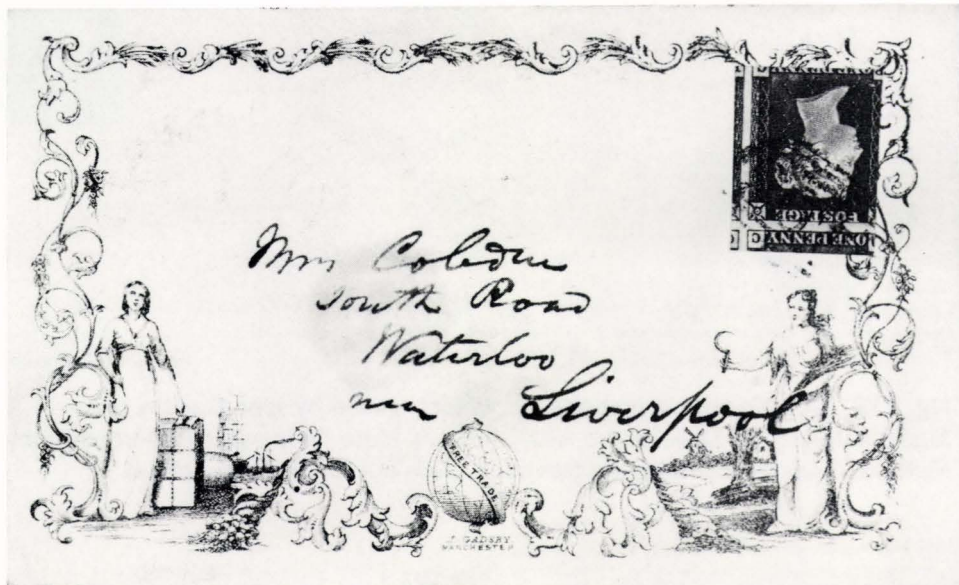 POSTAGE
ONE PENNY
C
Mrs Cobden
South Road
Waterloo
near Liverpool
FREE TRADE
J. GADSBY
MANCHESTER